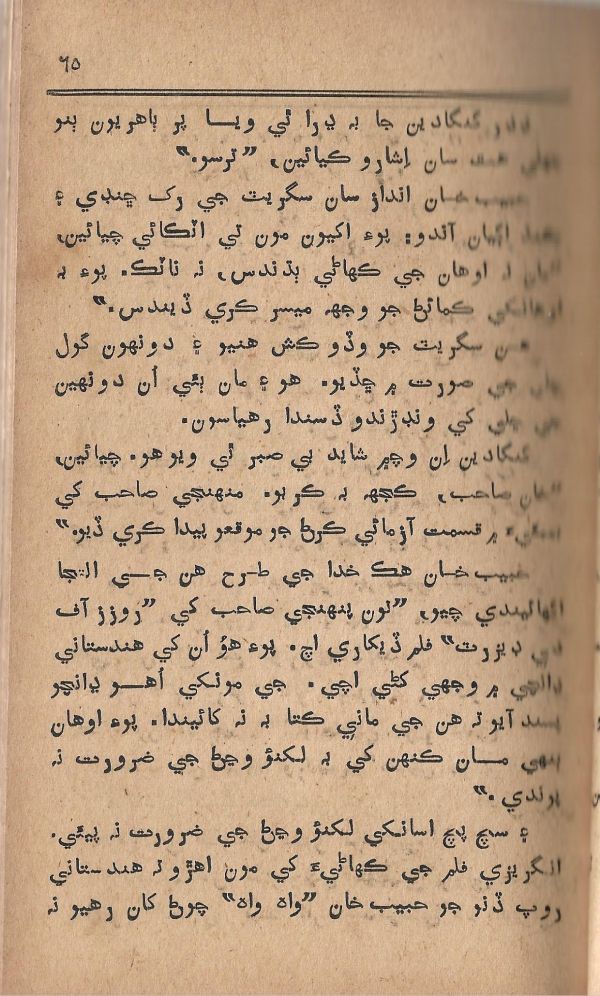 ٦٥
گنگادين جا ٻه ڍرا ٿي ويا پر ٻاهريون ٻنو
سان اِشارو ڪيائين، ”ترسو.“
خان انداز سان سگريٽ جي رک ڇنڊي ۽
آندو: پوءِ اکيون مون تي اٽڪائي چيائين،
اوهان جي ڪهاڻي ٻڌندس، نه ناٽڪ. پوءِ به
ڪمائڻ جو وجهہ ميسر ڪري ڏيندس.“
سگريٽ جو وڏو ڪش هنيو ۽ دونهون گول
جي صورت ۾ ڇڏيو. هو ۽ مان ٻئي اُن دونهين
کي ونڊڙندو ڏسندا رهياسون.
گنگادين اِن وچ۾ شايد بي صبر ٿي ويو هو. چيائين،
صاحب، ڪجهہ به ڪريو. منهنجي صاحب کي
۾ قسمت آزمائي ڪرڻ جو موقعو پيدا ڪري ڏيو.“
حبيب خان هڪ خدا جي طرح هن جي التجا
چيو، ”تون پنهنجي صاحب کي ”روزز آف
ڊيزرٽ“ فلم ڏيکاري اچ. پوءِ هوُ اُن کي هندستاني
۾ وجهي کڻي اچي. جي مونکي اُهو ڍانچو
پسند آيو ته هن جي ماني ڪتا به نه کائيندا. پوءِ اوهان
مان ڪنهن کي به لکنؤ وڃڻ جي ضرورت نه
پوندي.“
۽ سچ پچ اسانکي لکنؤ وڃڻ جي ضرورت نه پيئي.
انگريزي فلم جي ڪهاڻيءَ کي مون اهڙو ته هندستاني
روپ ڏنو جو حبيب خان ”واه واه“ چوڻ کان رهيو نه